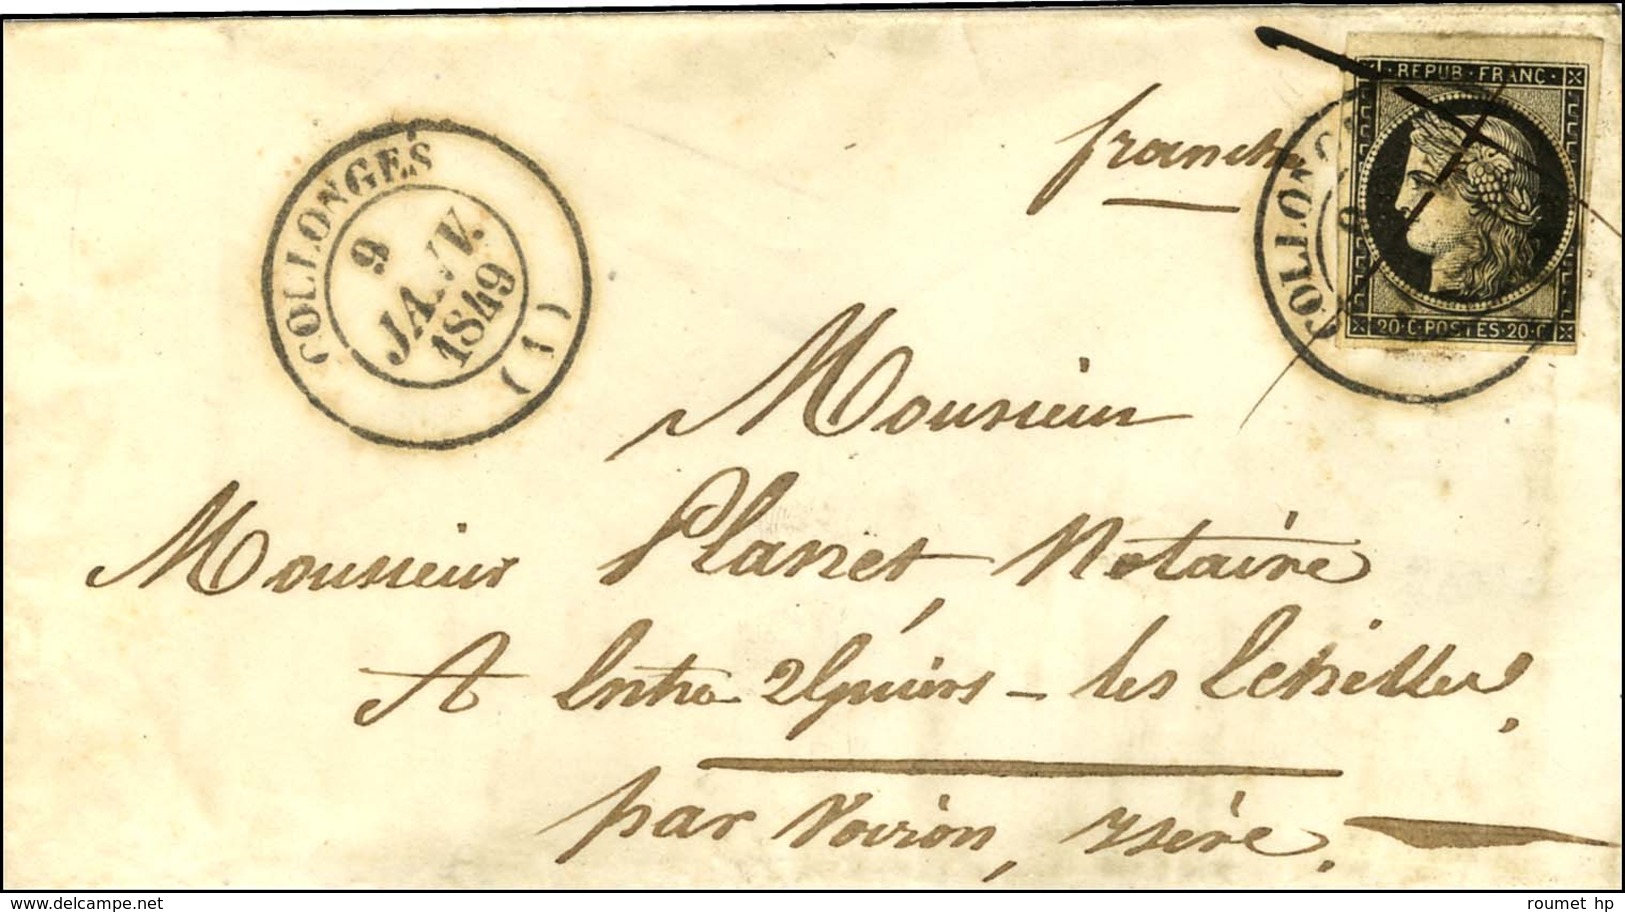 REPUB · FRANC ·
20 · C · POSTES · 20 · C
COLLONGES
9
JANV.
1849
(1)
COLLONG
9
franche
Monsieur
Monsieur Planet Notaire
A Entre 2 Guiers - les Echelles,
par Voiron, Isère.
www.delcampe.net
roumet hp